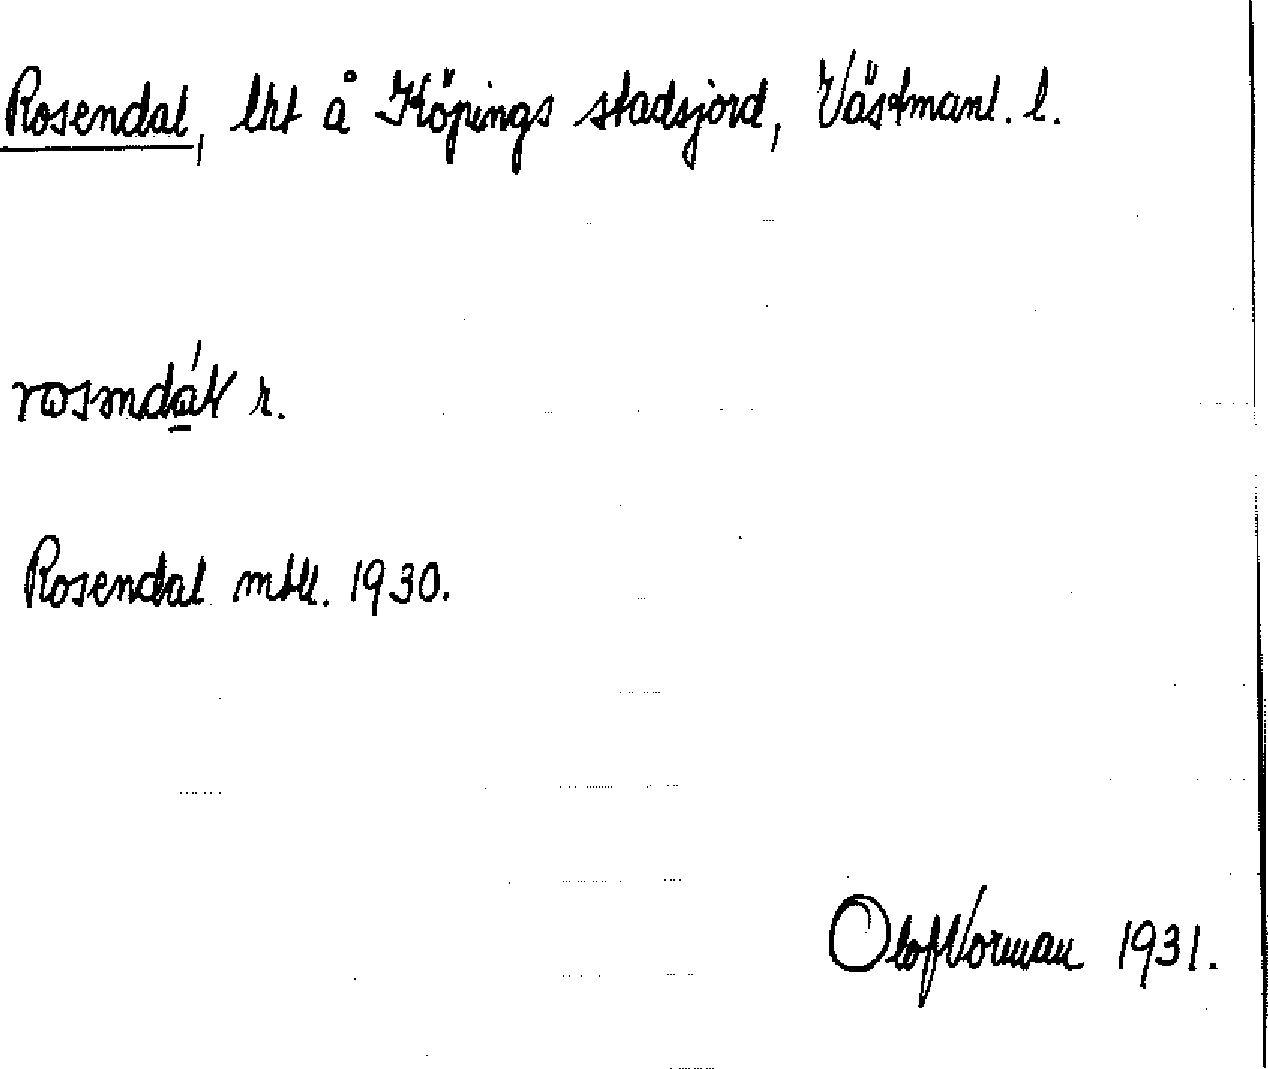 Rosendal, lht å Köpings stadsjord, Västmanl. l.
r.
Rosendal mtl. 1930.
Olof Norman 1931.